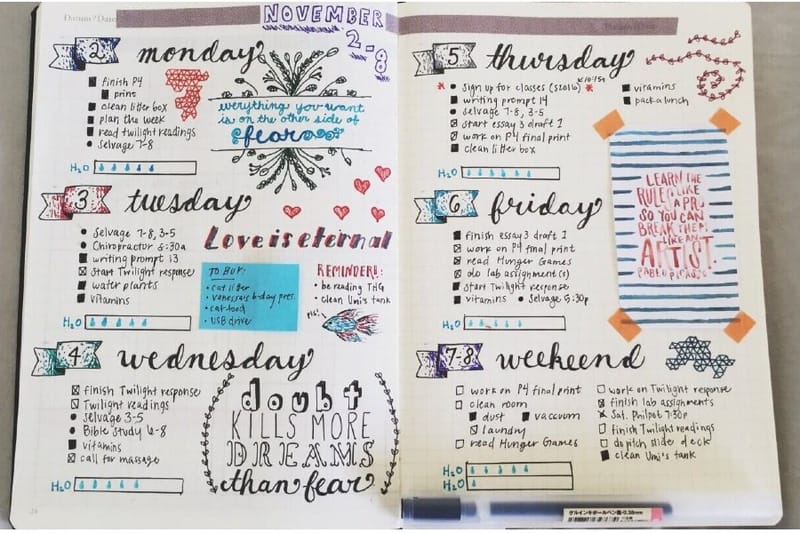 Datum / Date
NOVEMBER
2-8
2 monday
finish P4
print
clean litter box
plan the week
read twilight readings
selvage 7-8
H2O
everything you want
is on the other side of
fear
3 tuesday
selvage 7-8, 3-5
Chiropractor 8:30a
writing prompt 13
Start Twilight response
water plants
vitamins
H2O
Love is eternal
TO BUY:
cat litter
vanessa's b-day pres.
cat food
USB drive
REMINDERS:
be reading THG
clean Umi's tank
4 wednesday
finish Twilight response
Twilight readings
selvage 3-5
Bible study 6-8
vitamins
call for massage
H2O
doubt
KILLS MORE
DREAMS
than fear
5 thursday
sign up for classes (S2016)
writing prompt 14
selvage 7-8, 3-5
start essay 3 draft 1
work on P4 final print
clean litter box
vitamins
pack a lunch
H2O
LEARN THE
RULES LIKE
A PRO
SO YOU CAN
BREAK THEM
LIKE AN
ARTIST.
PABLO PICASSO
6 friday
finish essay 3 draft 1
work on P4 final print
read Hunger Games
old lab assignment(s)
start Twilight response
vitamins
selvage 5:30p
H2O
7-8 weekend
work on P4 final print
clean room
dust
vaccuum
laundry
read Hunger Games
work on Twilight response
finish lab assignments
Sat. Philpot 7:30p
finish Twilight readings
do pitch slide deck
clean Umi's tank
H2O
H2O
ゲルインキボールペン
0.38mm